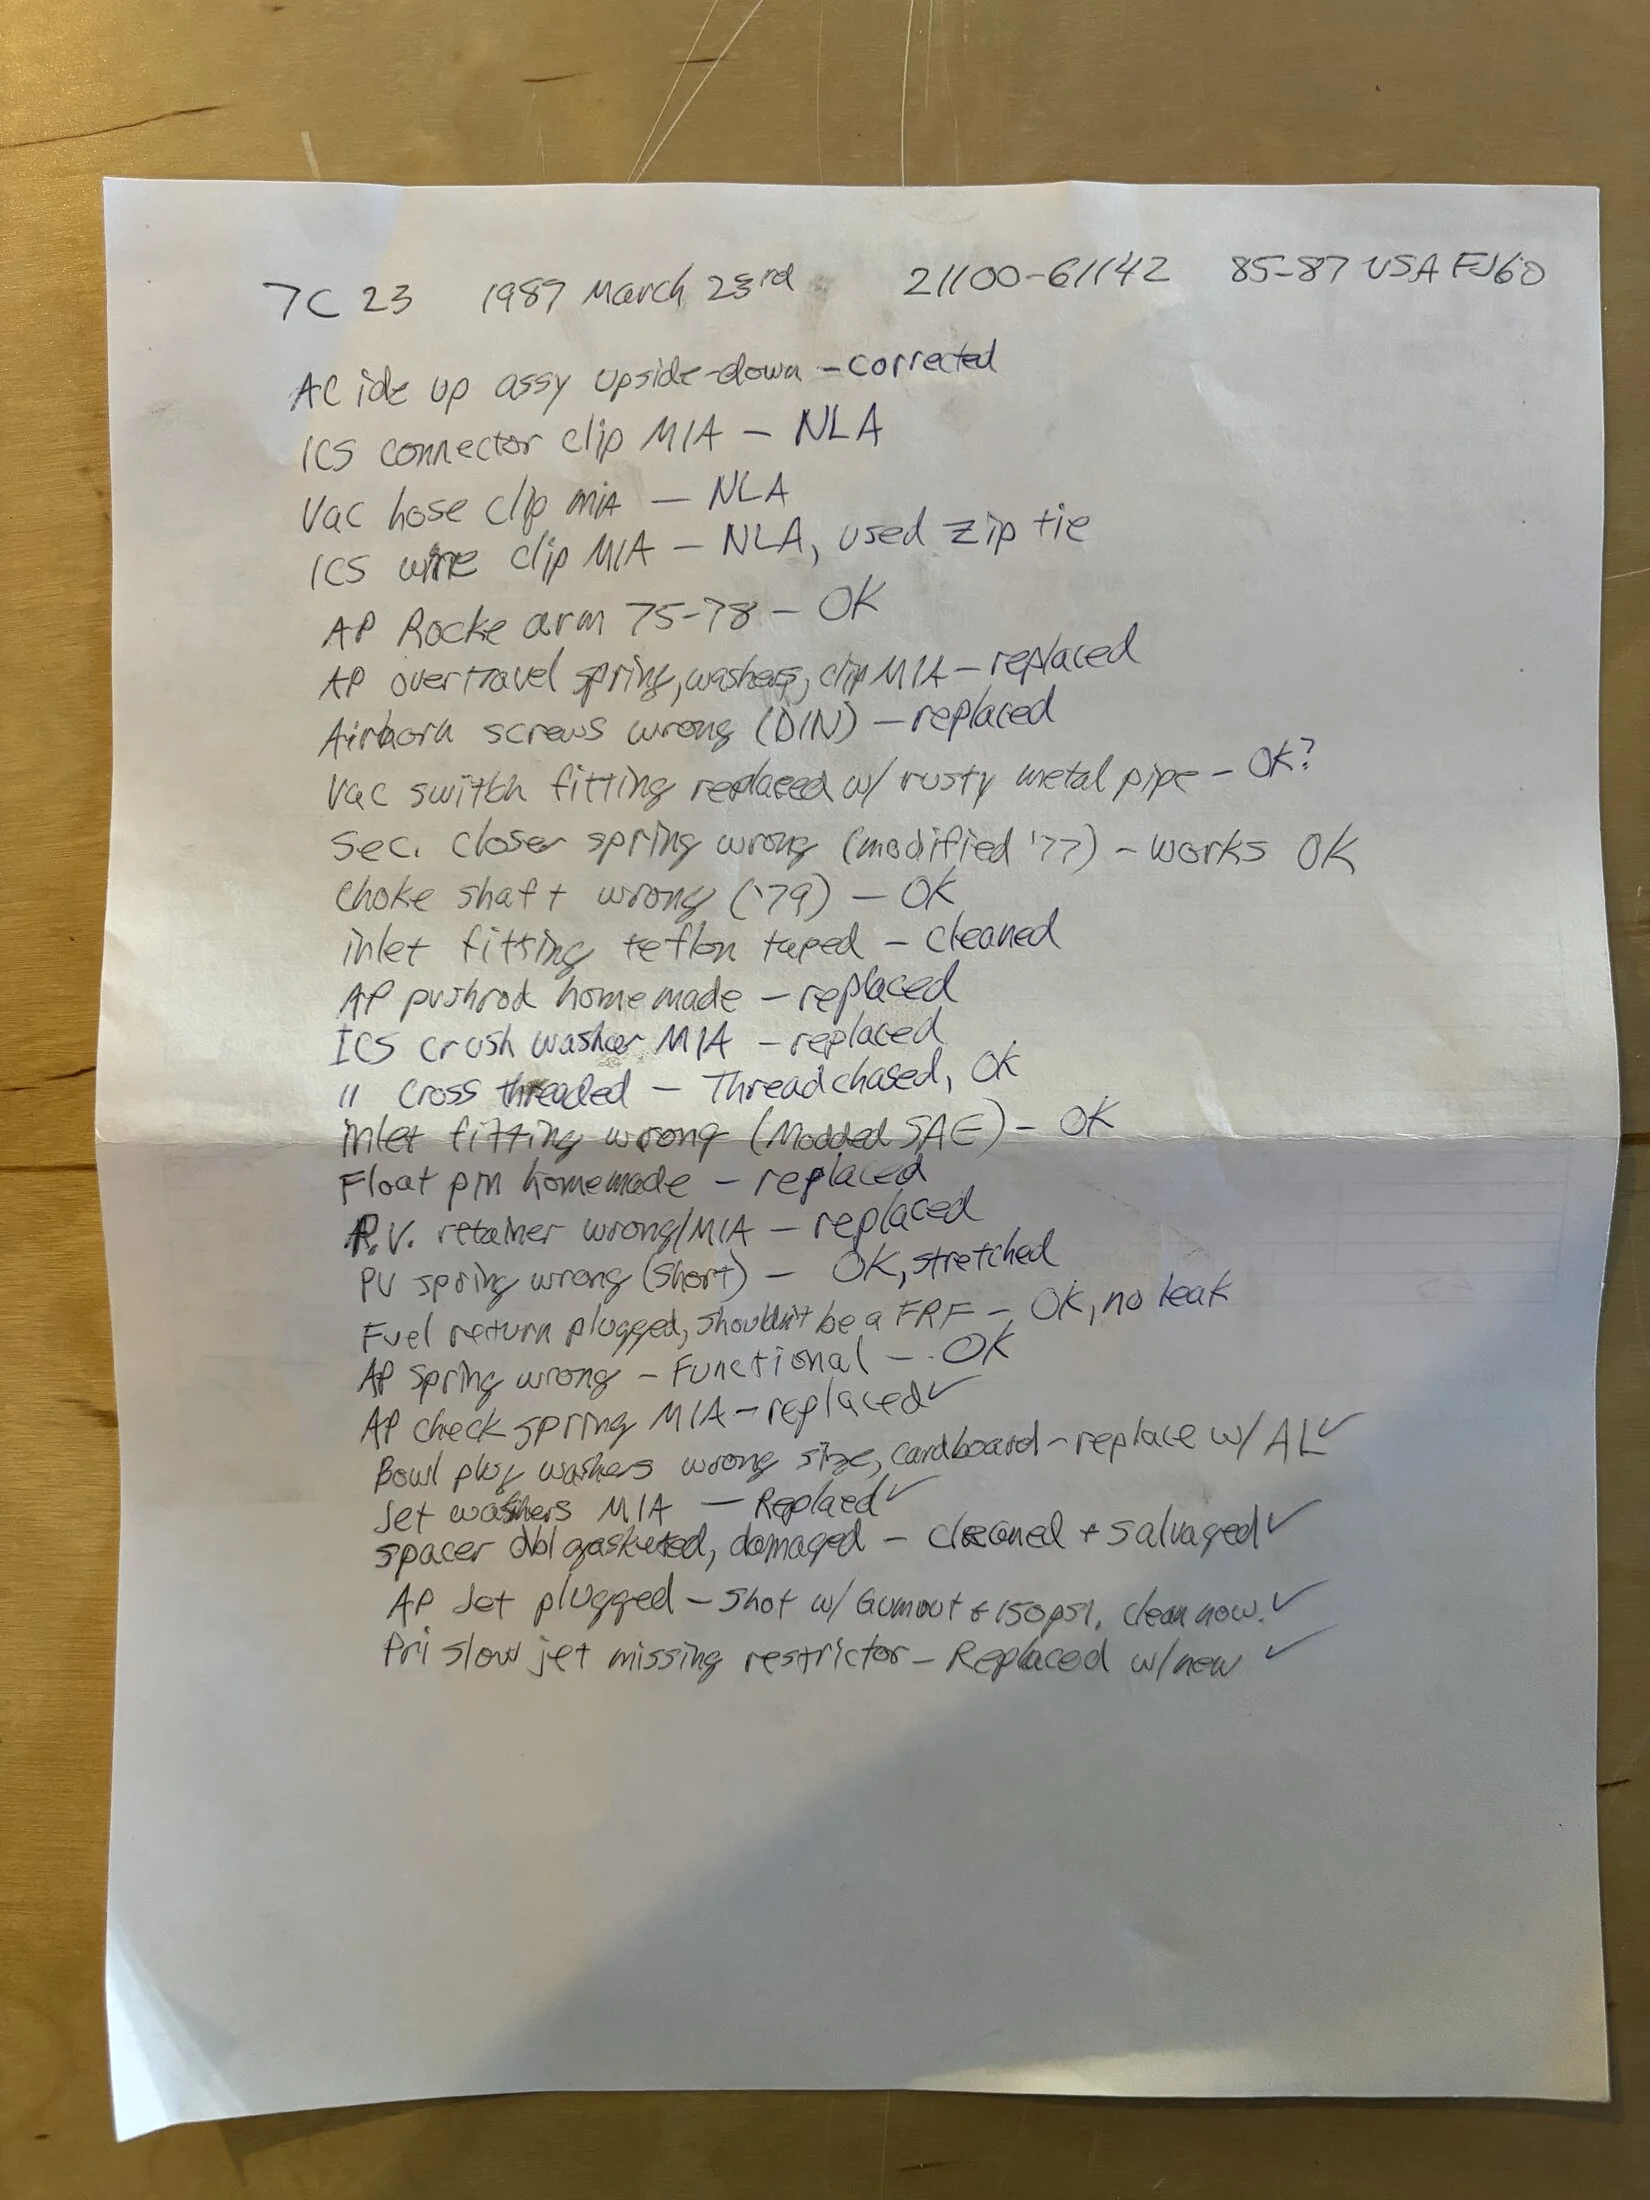 7C 23 1987 March 23rd 21100-61142 85-87 USA FJ60
AC idle up assy upside-down - corrected
ICS connector clip MIA - NLA
Vac hose clip MIA - NLA
ICS wire clip MIA - NLA, used zip tie
AP Rocke arm 75-78 - OK
AP overtravel spring, washers, clip MIA - replaced
Airhorn screws wrong (DIN) - replaced
Vac switch fitting replaced w/ rusty metal pipe - OK?
Sec. closer spring wrong (modified '77) - works OK
Choke shaft wrong ('79) - OK
inlet fitting teflon taped - cleaned
AP pushrod homemade - replaced
ICS crush washer MIA - replaced
" Cross threaded - Thread chased, OK
inlet fitting wrong (Modded SAE) - OK
Float pin homemade - replaced
P.V. retainer wrong/MIA - replaced
PV spring wrong (short) - OK, stretched
Fuel return plugged, shouldn't be a FRF - OK, no leak
AP spring wrong - Functional - OK
AP check spring MIA - replaced ✓
Bowl plug washers wrong size, cardboard - replace w/ AL ✓
Jet washers MIA - Replaed ✓
spacer dbl gasketed, damaged - cleaned + salvaged ✓
AP Jet plugged - shot w/ Gumout & 150psi, clean now. ✓
Pri slow jet missing restrictor - Replaced w/ new ✓